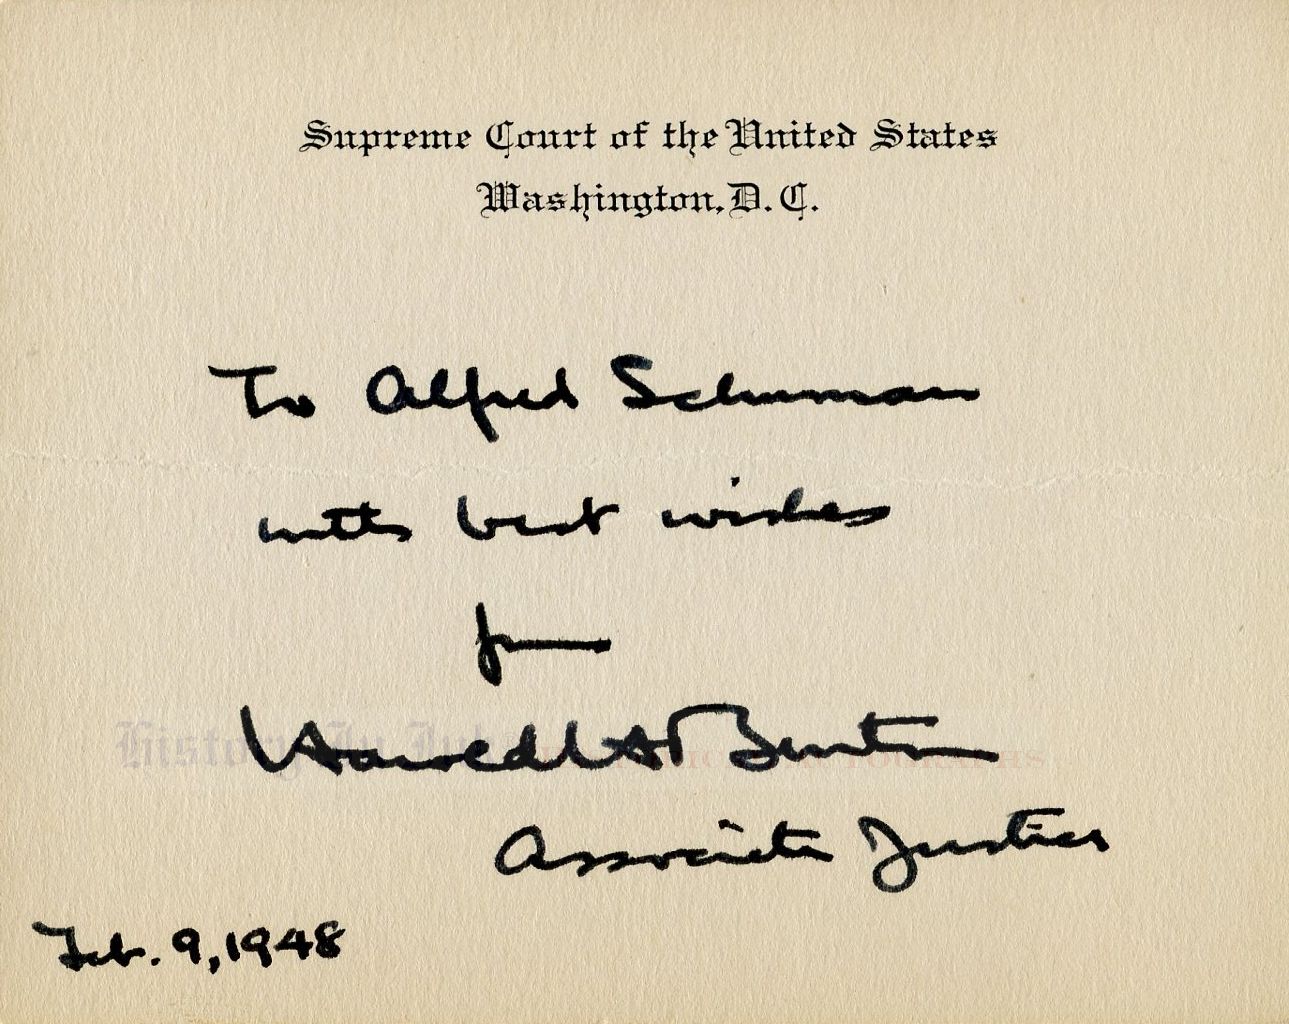 Supreme Court of the United States
Washington, D. C.
To Alfred Schuman
with best wishes
from
Harold H Burton
Associate Justice
Feb. 9, 1948
History In Ink